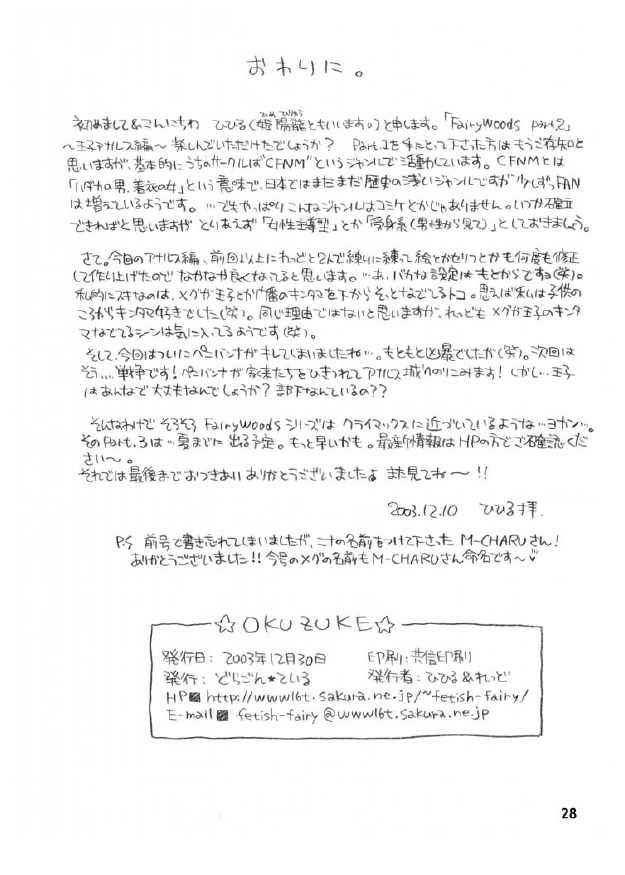 おわりに。
初めまして&こんにちわ ひひる(姫陽龍ともいいます。)と申します。「FairyWoods part.2」
～王子アナルス編～ 楽しんでいただけたでしょうか? Part.1を手にとって下さった方はもうご存知と
思いますが、基本的にうちのサークルは"CFNM"というジャンルで活動しています。CFNMとは
「ハダカの男、着衣の女」という意味で、日本ではまだまだ歴史の浅いジャンルですが少しずつFAN
は増えているようです。…でもやっぱりこんなジャンルはコミケとかじゃありません。いつか確立
できればと思いますが とりあえず「女性主導型」とか「受身系(男性から見て)」としておきましょう。
さて。今回のアナルス編、前回以上にれっどと2人で練りに練って絵とかセリフとかも何度も修正
して作り上げたので なかなか良くなってると思います。…あ、バカな設定はもとからですョ(笑)。
私的にスキなのは、メグが王子とか八幡のキンタマを下からそっとなでてるトコ。思えば私は子供の
ころからキンタマ好きでした(笑)。同じ理由ではないと思いますが、れっども メグが王子のキンタ
マなでてるシーンは気に入ってるようです(笑)。
そして、今回はついにペニバンナがキレてしまいましたね…。もともと凶暴でしたか(笑)。次回は
そう…戦争です! ペニバンナが家来たちをひきつれてアナルス城へのりこみます! しかし…王子
はあんなで大丈夫なんでしょうか? 部下なんているの??
そんなわけで そろそろ FairyWoods シリーズは クライマックスに近づいているような…ヨカン…。
そのPart.3は…夏までに出る予定。もっと早いかも。最新情報はHPの方でご確認くだ
さい～。
それでは最後までおつきあいありがとうございましたよ また見てね～!!
2003.12.10 ひひる拝.
P.S 前号で書き忘れてしまいましたが、ニナの名前をつけて下さった M-CHARUさん!
ありがとうございました!! 今号のメグの名前も M-CHARUさん命名です～♥
☆OKUZUKE☆
発行日: 2003年12月30日 印刷:共信印刷
発行: どらごん★ている 発行者:ひひる&れっど
HP http://www16t.sakura.ne.jp/~fetish-fairy/
E-mail fetish-fairy@www16t.sakura.ne.jp
28